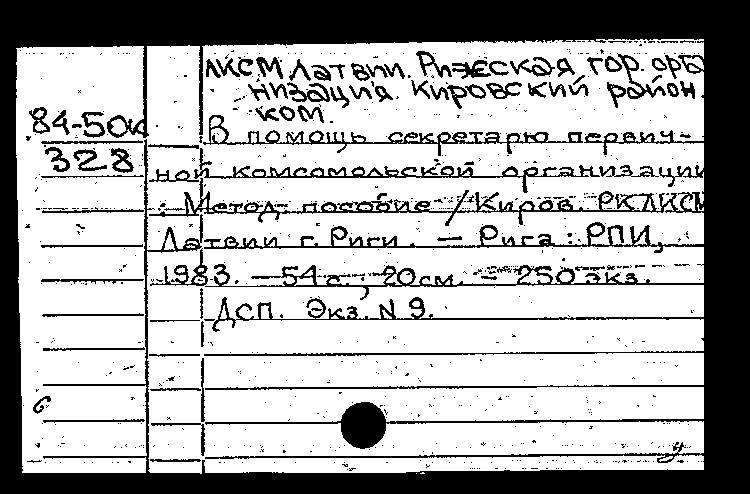 ЛКСМ Латвии. Рижская гор. орга
низация. Кировский район.
ком.
84-50к
328
В помощь секретарю первич-
ной комсомольской организации
: Метод. пособие / Киров. РК ЛКСМ
Латвии г. Риги. — Рига : РПИ,
1983. — 54 с. ; 20 см. — 250 экз.
ДСП. Экз. N 9.